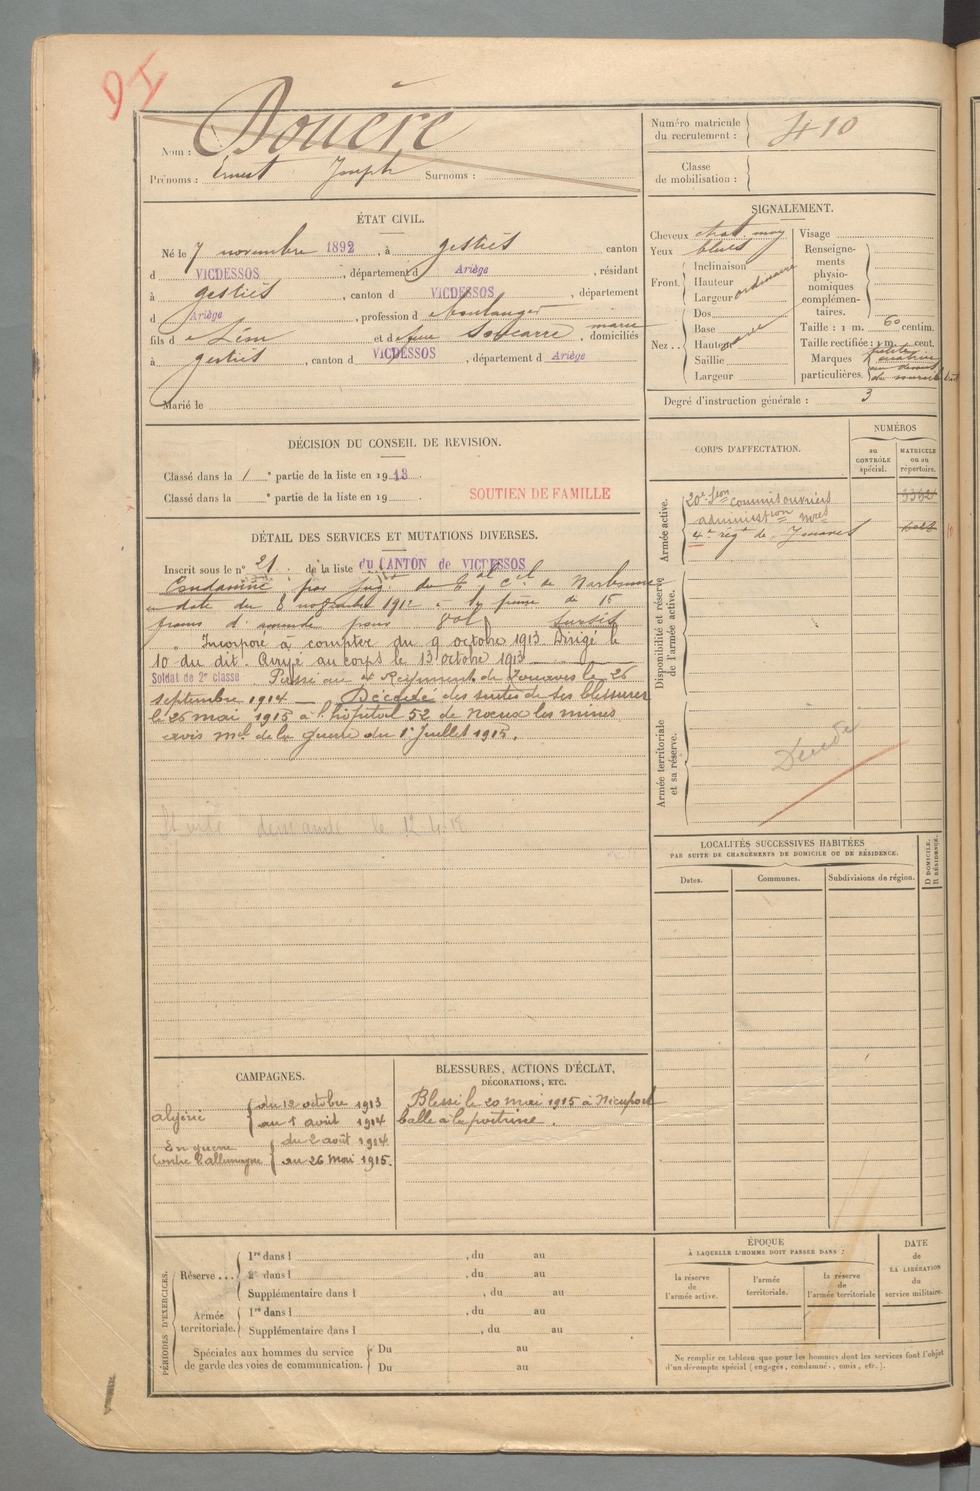 Nom : Douère
Prénoms : Ernest Joseph Surnoms :
Numéro matricule du recrutement : 410
Classe de mobilisation :
ÉTAT CIVIL.
Né le 7 novembre 1892, à Gestiès canton
d VICDESSOS, département d Ariège, résidant
à Gestiès, canton d VICDESSOS, département
d Ariège, profession d boulanger
fils d e Léon et de feue Marie, domiciliés
à Gestiès, canton d VICDESSOS, département d Ariège
Marié le
SIGNALEMENT.
Cheveux chat. moy
Yeux bleus
Front. Inclinaison
Hauteur ordinaire
Largeur
Nez.. Dos
Base
Hauteur
Saillie
Largeur
Visage
Renseignements physionomiques complémentaires.
Taille : 1 m. 60 centim.
Taille rectifiée : 1 m. cent.
Marques particulières. petite cicatrice au dessus du sourcil
Degré d'instruction générale : 3
DÉCISION DU CONSEIL DE REVISION.
Classé dans la 1e partie de la liste en 1913.
Classé dans la e partie de la liste en 19 .
SOUTIEN DE FAMILLE
CORPS D'AFFECTATION.
NUMÉROS
au CONTRÔLE spécial.
MATRICULE ou au répertoire.
Armée active.
20e Son commis ouvriers
administion mres
4e régt de Zouaves
Disponibilité et réserve de l'armée active.
Armée territoriale et sa réserve.
Décédé
DÉTAIL DES SERVICES ET MUTATIONS DIVERSES.
Inscrit sous le n° 21 de la liste du CANTON de VICDESSOS
Condamné par jugt du Tal cel de Narbonne
en date du 8 novembre 1912 à la peine de 15
francs d'amende pour vol sursis
Incorporé à compter du 9 octobre 1913. Dirigé le
10 du dit. Arrivé au corps le 13 octobre 1913
Soldat de 2e classe. Passé au 4e Régiment de Zouaves le 26
septembre 1914 — Décédé des suites de ses blessures
le 26 mai 1915 à l'hôpital 52 de Noeux les mines
avis mel de la guerre du 1er Juillet 1915.
demande le 12.4.18
LOCALITÉS SUCCESSIVES HABITÉES
PAR SUITE DE CHANGEMENTS DE DOMICILE OU DE RÉSIDENCE.
Dates.
Communes.
Subdivisions de région.
D DOMICILE. R RÉSIDENCE.
CAMPAGNES.
Algérie du 12 octobre 1913
au 1 août 1914
En guerre contre l'allemagne du 2 août 1914
au 26 Mai 1915.
BLESSURES, ACTIONS D'ÉCLAT,
DÉCORATIONS, ETC.
Blessé le 20 mai 1915 à Nieuport
balle à la poitrine.
PÉRIODES D'EXERCICES.
Réserve... 1re dans l , du au
2e dans l , du au
Supplémentaire dans l , du au
Armée territoriale. 1re dans l , du au
Supplémentaire dans l , du au
Spéciales aux hommes du service de garde des voies de communication. Du au
Du au
ÉPOQUE
À LAQUELLE L'HOMME DOIT PASSER DANS :
la réserve de l'armée active.
l'armée territoriale.
la réserve de l'armée territoriale
DATE de LA LIBÉRATION du service militaire.
Ne remplir ce tableau que pour les hommes dont les services font l'objet
d'un décompte spécial (engagés, condamnés, omis, etc.).